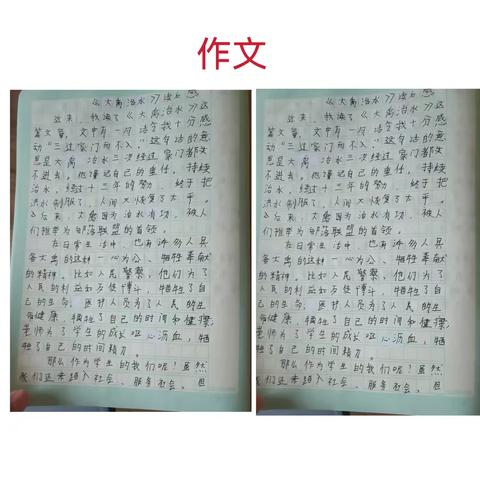 作文
《大禹治水》读后感
近来,我读了《大禹治水》这
篇文章,文中有一段话令我十分感
动“三过家门而不入。”这句话的意
思是大禹治水三次经过家门都文
不进去。他谨记自己的重任,持续
治水,经过十三年的努力,终于把
洪水制服了,人间又恢复了太平。
后来,大禹因为治水有功,被人
们推举为部落联盟的首领。
在日常生活中,也有许多人具
备大禹的这种一心为公、牺牲奉献
的精神。比如人民警察,他们为了
人民的利益和万世博斗,牺牲了自
己的生命;医护人员为了人民的生
命健康,牺牲了自己的时间和健康;
老师为了学生的成长呕心沥血,牺
牲了自己的时间精力。
那么作为学生的我们呢?虽然
我们还未踏入社会、服务社会,但
《大禹治水》读后感
近来,我读了《大禹治水》这
篇文章,文中有一段话令我十分感
动“三过家门而不入。”这句话的意
思是大禹治水三次经过家门都文
不进去。他谨记自己的重任,持续
治水,经过十三年的努力,终于把
洪水制服了,人间又恢复了太平。
后来,大禹因为治水有功,被人
们推举为部落联盟的首领。
在日常生活中,也有许多人具
备大禹的这种一心为公、牺牲奉献
的精神。比如人民警察,他们为了
人民的利益和万世博斗,牺牲了自
己的生命;医护人员为了人民的生
命健康,牺牲了自己的时间和健康;
老师为了学生的成长呕心沥血,牺
牲了自己的时间精力。
那么作为学生的我们呢?虽然
我们还未踏入社会、服务社会,但